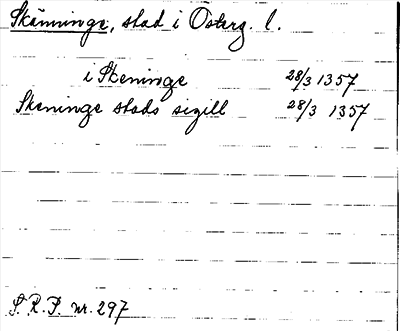 Skänninge, stad i Österg. l.
i Skeninge 28/3 1357
Skeninge stads sigill 28/3 1357
S. R. P. nr. 297